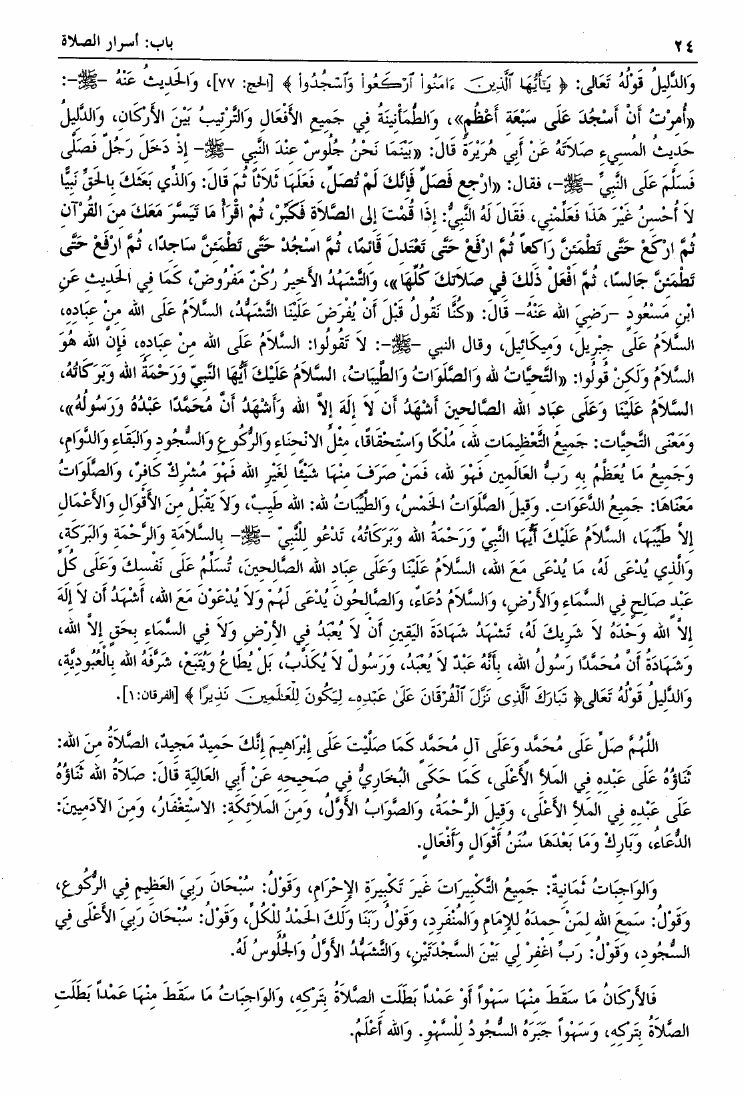 ٢٤ باب: أسرار الصلاة
وَالدَّلِيلُ قَوْلُهُ تَعَالى: ﴿ يَٰٓأَيُّهَا ٱلَّذِينَ ءَامَنُوا۟ ٱرْكَعُوا۟ وَٱسْجُدُوا۟ ﴾ [الحج: ٧٧]، وَالحَدِيثُ عَنْهُ -ﷺ-:
«أُمِرْتُ أَنْ أَسْجُدَ عَلَى سَبْعَةِ أَعْظُمٍ»، وَالطُّمَأْنِينَةُ فِي جَمِيعِ الأَفْعَالِ وَالتَّرْتِيبُ بَيْنَ الأَرْكَانِ، وَالدَّلِيلُ
حَدِيثُ المُسِيءِ صَلاَتَهُ عَنْ أَبِي هُرَيْرَةَ قَالَ: «بَيْنَمَا نَحْنُ جُلُوسٌ عِنْدَ النَّبِي -ﷺ- إذ دَخَلَ رَجُلٌ فَصَلَّى
فَسَلَّمَ عَلَى النَّبِيِّ -ﷺ-، فقال: «ارْجِع فَصَلِّ فَإِنَّكَ لَمْ تُصَلِّ، فَعَلَهَا ثَلاَثاً ثُمَّ قَالَ: وَالَّذي بَعَثَكَ بِالحَقِّ نَبِيًّا
لاَ أُحْسِنُ غَيْرَ هَذَا فَعَلِّمْنِي، فَقَالَ لَهُ النَّبِيُّ: إذَا قُمْتَ إلى الصَّلاَةِ فَكَبِّرْ، ثُمَّ اقْرَأْ مَا تَيَسَّرَ مَعَكَ مِنَ القُرْآنِ
ثُمَّ ارْكَعْ حَتَّى تَطْمَئِنَّ رَاكعاً ثُمَّ ارْفَعْ حَتَّى تَعْتَدِلَ قَائمًا، ثُمَّ اسْجُدْ حَتَّى تَطْمَئنَّ سَاجِدًا، ثُمَّ ارْفَعْ حَتَّى
تَطمَئِنَّ جَالسًا، ثُمَّ افْعَلْ ذَلكَ في صَلاَتكَ كُلِّهَا»، وَالتَّشَهُّدُ الأخيرُ رُكْنٌ مَفْرُوضٌ، كَمَا فِي الحَديثِ عَنِ
ابْنِ مَسْعُودٍ -رَضِيَ الله عَنْهُ- قَالَ: «كُنَّا نَقُولُ قَبْلَ أَنْ يُفْرَضَ عَلَيْنَا التَّشَهُّدُ، السَّلاَمُ عَلَى الله مِنْ عِبَادِهِ،
السَّلاَمُ عَلَى جِبْرِيلَ، وَمِيكَائِيلَ، وقال النبي -ﷺ-: لاَ تَقُولُوا: السَّلاَمُ عَلَى الله مِنْ عِبَادِهِ، فَإِنَّ الله هُوَ
السَّلاَمُ وَلَكِنْ قُولُوا: «التَّحِيَّاتُ لله وَالصَّلَوَاتُ وَالطَّيِّبَاتُ، السَّلاَمُ عَلَيْكَ أَيُّهَا النَّبِيُّ وَرَحْمَةُ الله وَبَرَكَاتُهُ،
السَّلاَمُ عَلَيْنَا وَعَلَى عبَاد الله الصَّالحينَ أَشْهَدُ أَن لاَ إلَهَ إلاَّ الله وَأَشْهَدُ أَنَّ مُحَمَّدًا عَبْدُهُ وَرَسُولُهُ»،
وَمَعْنَى التَّحِيَّات: جَمِيعُ التَّعْظِيمَاتِ لله، مُلْكًا وَاسْتِحْقَاقًا، مِثْلُ الانْحِنَاءِ وَالرُّكُوعِ وَالسُّجُودِ وَالبَقَاءِ وَالدَّوَامِ،
وَجَمِيعُ مَا يُعَظَّمُ بِهِ رَبُّ العَالَمِينَ فَهْوَ لله، فَمَنْ صَرَفَ مِنْهَا شَيْئًا لغَيْرِ الله فَهْوَ مُشْرِكٌ كَافِرٌ، وَالصَّلَوَاتُ
مَعْنَاهَا: جَمِيعُ الدَّعَوَاتِ. وَقِيلَ الصَّلَوَاتُ الخَمْسُ، وَالطَّيِّبَاتُ لله: الله طَيِّبٌ، وَلاَ يَقْبَلُ مِنَ الأَقْوَالِ وَالأَعْمَالِ
إلاَّ طَيِّبَهَا، السَّلاَمُ عَلَيْكَ أَيُّهَا النَّبِيُّ وَرَحْمَةُ الله وَبَرَكَاتُهُ، تَدْعُو لِلنَّبِيِّ -ﷺ- بالسَّلاَمَةِ وَالرَّحْمَةِ وَالبَرَكَةِ،
وَالَّذِي يُدْعَى لَهُ، مَا يُدْعَى مَعَ الله، السَّلاَمُ عَلَيْنَا وَعَلَى عبَاد الله الصَّالحينَ، تُسَلِّمُ عَلَى نَفْسِكَ وَعَلَى كُلِّ
عَبْدٍ صَالِحٍ فِي السَّمَاءِ وَالأَرْضِ، وَالسَّلاَمُ دُعَاءٌ، وَالصَّالِحُونَ يُدْعَى لَهُمْ وَلاَ يُدْعَوْنَ مَعَ الله، أَشْهَدُ أَن لاَ إِلَهَ
إلاَّ الله وَحْدَهُ لاَ شَرِيكَ لَهُ، تَشْهَدُ شَهَادَةَ اليَقِينِ أَن لاَ يُعْبَدُ في الأَرْضِ وَلاَ فِي السَّمَاءِ بِحَقٍ إلاَّ الله،
وَشَهَادَةُ أَنَّ مُحَمَّدًا رَسُولُ الله، بِأَنَّهُ عَبْدٌ لاَ يُعْبَدُ، وَرَسُولٌ لاَ يُكَذَّبُ، بَلْ يُطَاعُ وَيُتَّبَعُ، شَرَّفَهُ الله بِالْعُبُودِيَّةِ،
وَالدَّلِيلُ قَوْلُهُ تَعَالى﴿ تَبَارَكَ ٱلَّذِى نَزَّلَ ٱلْفُرْقَانَ عَلَىٰ عَبْدِهِۦ لِيَكُونَ لِلْعَٰلَمِينَ نَذِيرًا ﴾ [الفرقان:١].
اللَّهُمَّ صَلِّ عَلَى مُحَمَّدٍ وَعَلَى آلِ مُحَمَّدٍ كَمَا صَلَّيْتَ عَلَى إبْرَاهِيمَ إنَّكَ حَمِيدٌ مَجِيدٌ، الصَّلاَةُ مِنَ الله:
ثَنَاؤُهُ عَلَى عَبْدِهِ في المَلأ الأَعْلَى، كَمَا حَكَى البُخَارِيُّ فِي صَحِيحِهِ عَنْ أَبِي العَالِيَةِ قَالَ: صَلاَةُ الله ثَنَاؤُهُ
عَلَى عَبْدِهِ في المَلأ الأَعْلَى، وَقِيلَ الرَّحْمَةُ، وَالصَّوَابُ الأَوَّلُ، وَمِنَ المَلاَئِكَةِ: الاسْتِغْفَارُ، وَمِنَ الآدَمِيِّينَ:
الدُّعَاءُ، وَبَارِكْ وَمَا بَعْدَهَا سُنَنُ أَقْوَالٍ وَأَفْعَالٍ.
وَالوَاجِبَاتُ ثَمَانِيَةٌ: جَمِيعُ التَّكْبِيرَاتِ غَيرَ تَكْبِيرَةِ الإِحْرَامِ، وَقَوْلُ: سُبْحَانَ رَبِّيَ العَظِيمِ فِي الرُّكُوعِ،
وَقَوْلُ: سَمِعَ الله لِمَنْ حَمِدَهُ لِلإِمَامِ وَالمُنْفَرِدِ، وَقَوْلُ رَبَّنَا وَلَكَ الحَمْدُ لِلْكُلِّ، وَقَوْلُ: سُبْحَانَ رَبِّيَ الأَعْلَى فِي
السُّجُودِ، وَقَوْلُ: رَبِّ اغْفِرْ لِي بَيْنَ السَّجْدَتَيْنِ، وَالتَّشَهُّدُ الأَوَّلُ وَالجُلُوسُ لَهُ.
فَالأَرْكَانُ مَا سَقَطَ مِنْهَا سَهْواً أَوْ عَمْداً بَطَلَتِ الصَّلاَةُ بِتَرْكِهِ، وَالوَاجِبَاتُ مَا سَقَطَ مِنْهَا عَمْداً بَطَلَتِ
الصَّلاَةُ بِتَرْكِهِ، وَسَهْواً جَبَرَهُ السُّجُودُ لِلسَّهْوِ. وَالله أَعْلَمُ.